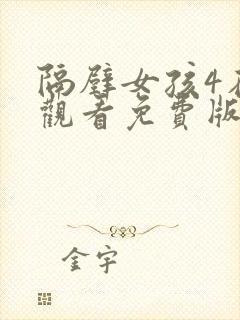 隔壁女孩4在
觀看免費版
金宇